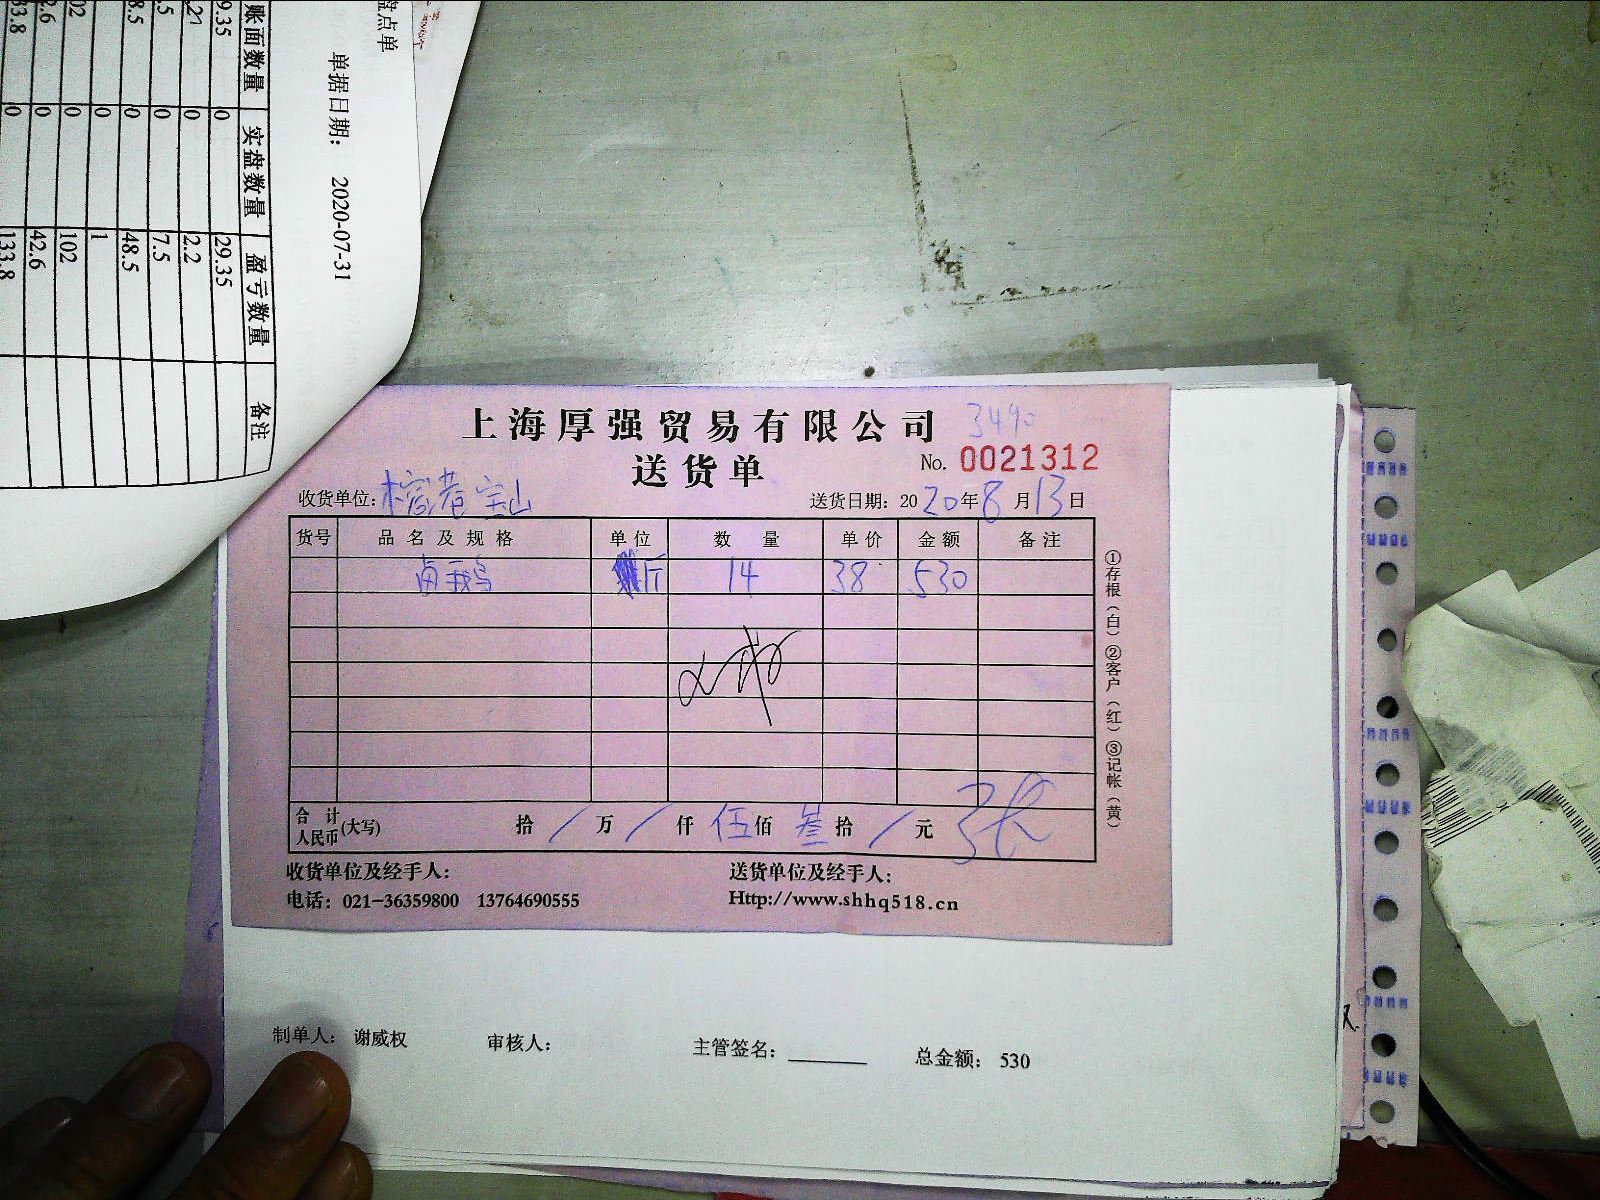 盘点单
单据日期： 2020-07-31
账面数量 实盘数量 盈亏数量 备注
9.35 0 29.35
0 2.2
.5 0 7.5
8.5 0 48.5
0 1
02 0 102
2.6 0 42.6
33.8 0 133.8
上海厚强贸易有限公司 3490
送货单 No. 0021312
收货单位: 宝山 送货日期: 2020年8月13日
货号 品名及规格 单位 数量 单价 金额 备注
卤鹅 斤 14 38 530
①存根（白）②客户（红）③记帐（黄）
合计人民币(大写) 拾 / 万 / 仟 伍佰 叁拾 / 元
收货单位及经手人: 送货单位及经手人: 张
电话: 021-36359800 13764690555 Http://www.shhq518.cn
制单人: 谢威权 审核人: 主管签名: ________ 总金额: 530